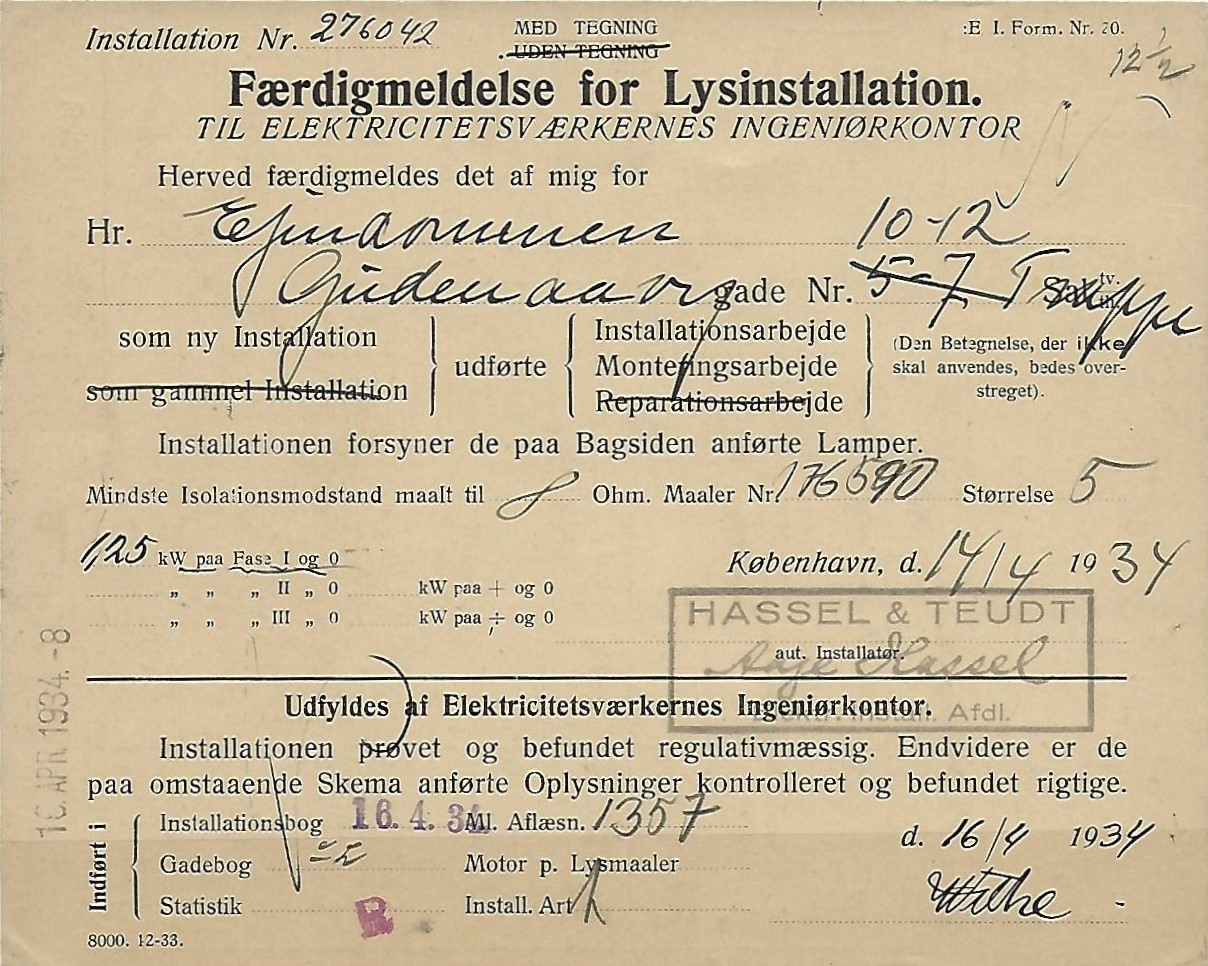 Installation Nr. 276042 MED TEGNING :E I. Form. Nr. 20.
UDEN TEGNING 12 1/2
Færdigmeldelse for Lysinstallation.
TIL ELEKTRICITETSVÆRKERNES INGENIØRKONTOR
Herved færdigmeldes det af mig for
Hr. Ejendommen 10-12
Gudenaavej gade Nr. 5-7 Trappe Sal tv. th.
som ny Installation
som gammel Installation
udførte
Installationsarbejde
Monteringsarbejde
Reparationsarbejde
(Den Betegnelse, der ikke
skal anvendes, bedes over-
streget).
Installationen forsyner de paa Bagsiden anførte Lamper.
Mindste Isolationsmodstand maalt til Ohm. Maaler Nr. 176590 Størrelse 5
1,25 kW paa Fase I og 0 København, d. 14/4 1934
„ „ „ II „ 0 kW paa + og 0
„ „ „ III „ 0 kW paa ÷ og 0
HASSEL & TEUDT
aut. Installatør.
Aage Hassel
Elektr. Install. Afdl.
16. APR. 1934. - 8
Udfyldes af Elektricitetsværkernes Ingeniørkontor.
Installationen prøvet og befundet regulativmæssig. Endvidere er de
paa omstaaende Skema anførte Oplysninger kontrolleret og befundet rigtige.
Indført i
Installationsbog 16. 4. 34 Ml. Aflæsn. 1357 d. 16/4 1934
Gadebog Motor p. Lysmaaler
Statistik R Install. Art
8000. 12-33.